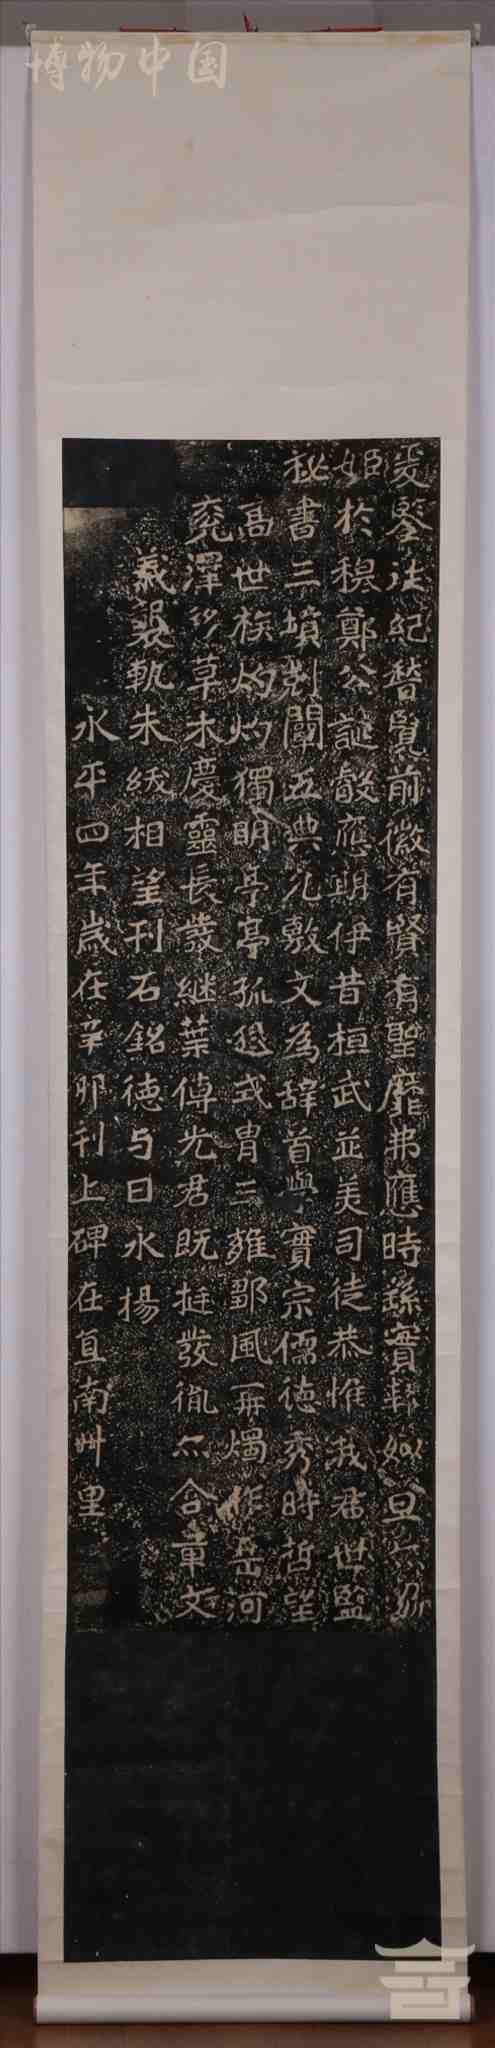 爰鑒往紀稽覽前徽有賢有聖靡弗應時繇實契如旦六於
姬於穆鄭公誕叡應期伊昔桓武並美司徒恭惟我君世監
秘書三墳剖闡五典允敷文為辭首學實宗儒德秀時哲望
高世族灼灼獨明亭亭孤邈式胄三雍鄒風再燭作岳河
兗澤移草木慶靈長發継葉傳光君既挺發胤亦含章文
義襲軌朱紱相望刊石銘德与日永揚
永平四年歳在辛卯刊上碑在直南卌里
博物中国